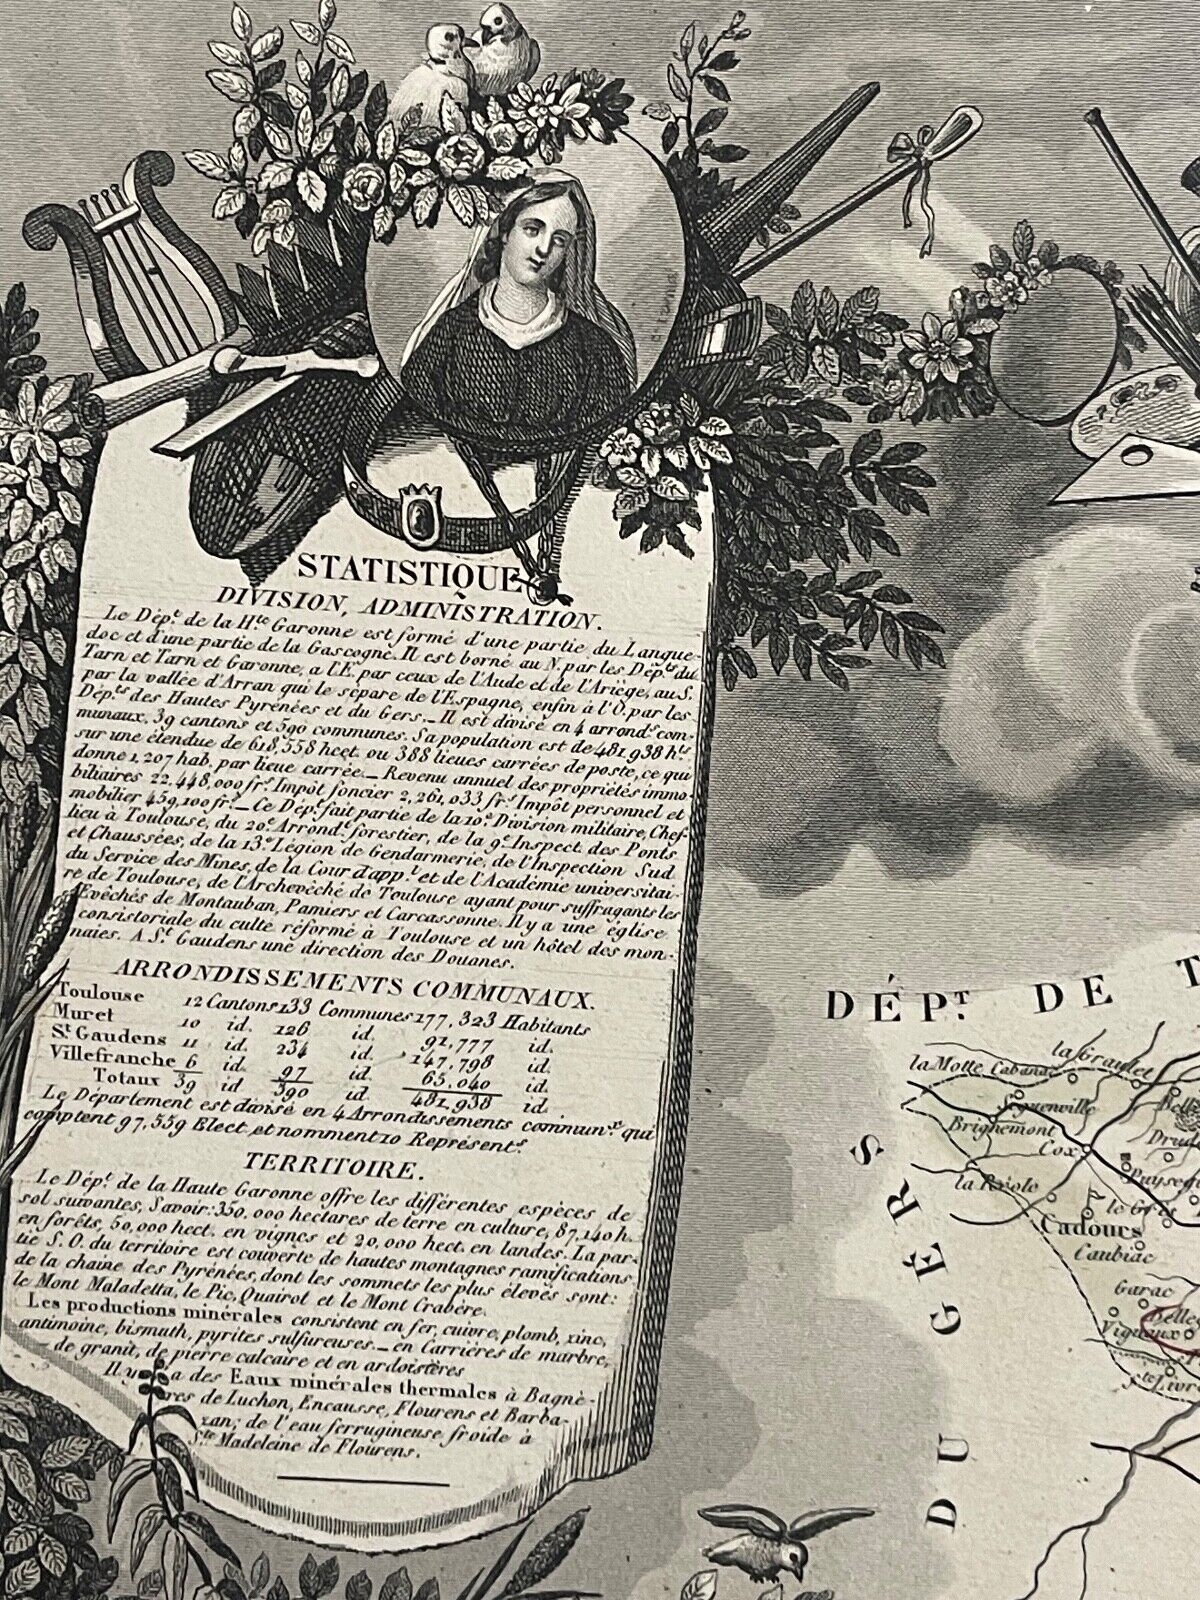 STATISTIQUE
DIVISION, ADMINISTRATION.
Le Dép.t de la H.te Garonne est formé d'une partie du Langue-
doc et d'une partie de la Gascogne. Il est borné au N. par les Dép.ts du
Tarn et Tarn et Garonne, a l'E. par ceux de l'Aude et de l'Ariége, au S.
par la vallée d'Arran qui le sépare de l'Espagne, enfin à l'O. par les
Dép.ts des Hautes Pyrénées et du Gers._ Il est divisé en 4 arrond.s com-
munaux, 39 cantons et 590 communes. Sa population est de 481,938 h.ts
sur une étendue de 618,558 hect. ou 388 lieues carrées de poste, ce qui
donne 1,207 hab. par lieue carrée._ Revenu annuel des propriétés immo-
biliaires 22,448,000 fr.s Impôt foncier 2,261,033 fr.s Impôt personnel et
mobilier 459,100 fr.s_ Ce Dép.t fait partie de la 10.e Division militaire, Chef-
lieu à Toulouse, du 20.e Arrond.t forestier, de la 9.e Inspect. des Ponts
et Chaussées, de la 13.e Légion de Gendarmerie, de l'Inspection Sud
du Service des Mines, de la Cour d'app.l et de l'Académie universitai-
re de Toulouse, de l'Archevêché de Toulouse ayant pour suffragants les
Evêchés de Montauban, Pamiers et Carcassonne. Il y a une église
consistoriale du culte réformé à Toulouse et un hôtel des mon-
naies. A S.t Gaudens une direction des Douanes.
ARRONDISSEMENTS COMMUNAUX.
Toulouse 12 Cantons 133 Communes 177,323 Habitants
Muret 10 id. 126 id. 91,777 id.
S.t Gaudens 11 id. 234 id. 147,798 id.
Villefranche 6 id. 97 id. 65,040 id.
Totaux 39 id 390 id. 481,938 id.
Le Département est divisé en 4 Arrondissements commun.x qui
comptent 97,559 Elect. et nomment 10 Représent.s
TERRITOIRE.
Le Dép.t de la Haute Garonne offre les différentes espèces de
sol suivantes, Savoir: 350,000 hectares de terre en culture, 87,140 h.
en forêts, 50,000 hect. en vignes et 20,000 hect. en landes. La par-
tie S.O. du territoire est couverte de hautes montagnes ramifications
de la chaine des Pyrénées, dont les sommets les plus élevés sont:
le Mont Maladetta, le Pic, Quairot et le Mont Crabère.
Les productions minérales consistent en fer, cuivre, plomb, zinc,
antimoine, bismuth, pyrites sulfureuses._ en Carrières de marbre,
de granit, de pierre calcaire et en ardoisières
Il y a des Eaux minérales thermales à Bagnè-
res de Luchon, Encausse, Flourens et Barba-
zan; de l'eau ferrugineuse froide à
S.te Madeleine de Flourens.
DÉP.T DE T
la Motte Cabanac
la Graulet
Seguenville
Brignemont
Cox
Drud
Puysegu
la Réole
le Grès
Cadours
Caubiac
Garac
Belleg
Vignaux
S.te Livr
DU GERS